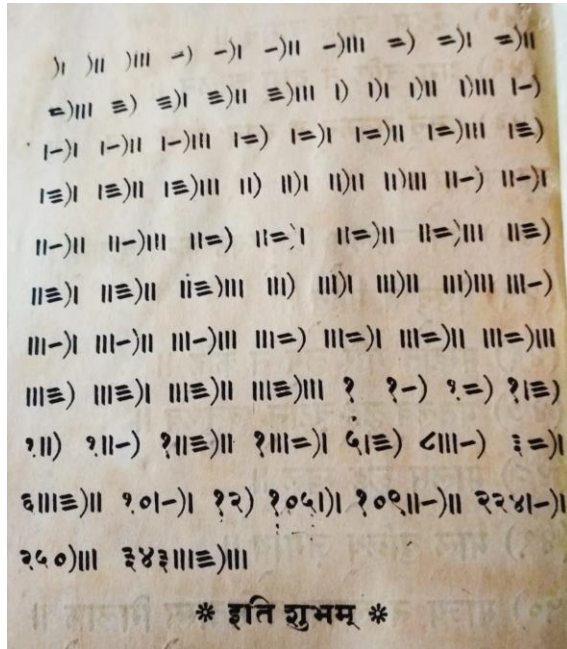 )। )॥ )॥। -) -)। -)॥ -)॥। =) =)। =)॥
=)॥। ≡) ≡)। ≡)॥ ≡)॥। ।) ।)। ।)॥ ।)॥। ।-)
।-)। ।-)॥ ।-)॥। ।=) ।=)। ।=)॥ ।=)॥। ।≡)
।≡)। ।≡)॥ ।≡)॥। ॥) ॥)। ॥)॥ ॥)॥। ॥-) ॥-)।
॥-)॥ ॥-)॥। ॥=) ॥=)। ॥=)॥ ॥=)॥। ॥≡)
॥≡)। ॥≡)॥ ॥≡)॥। ॥।) ॥।)। ॥।)॥ ॥।)॥। ॥।-)
॥।-)। ॥।-)॥ ॥।-)॥। ॥।=) ॥।=)। ॥।=)॥ ॥।=)॥।
॥।≡) ॥।≡)। ॥।≡)॥ ॥।≡)॥। १ १-) १=) १।≡)
१॥) १॥-) १॥≡)॥ १॥।=)। ५।≡) ८॥।-) ३=)।
६॥।≡)॥ १०।-)। १२) १०५।)। १०९॥-)॥ २२४।-)।
२५०)॥। ३४३॥।≡)॥।
* इति शुभम् *